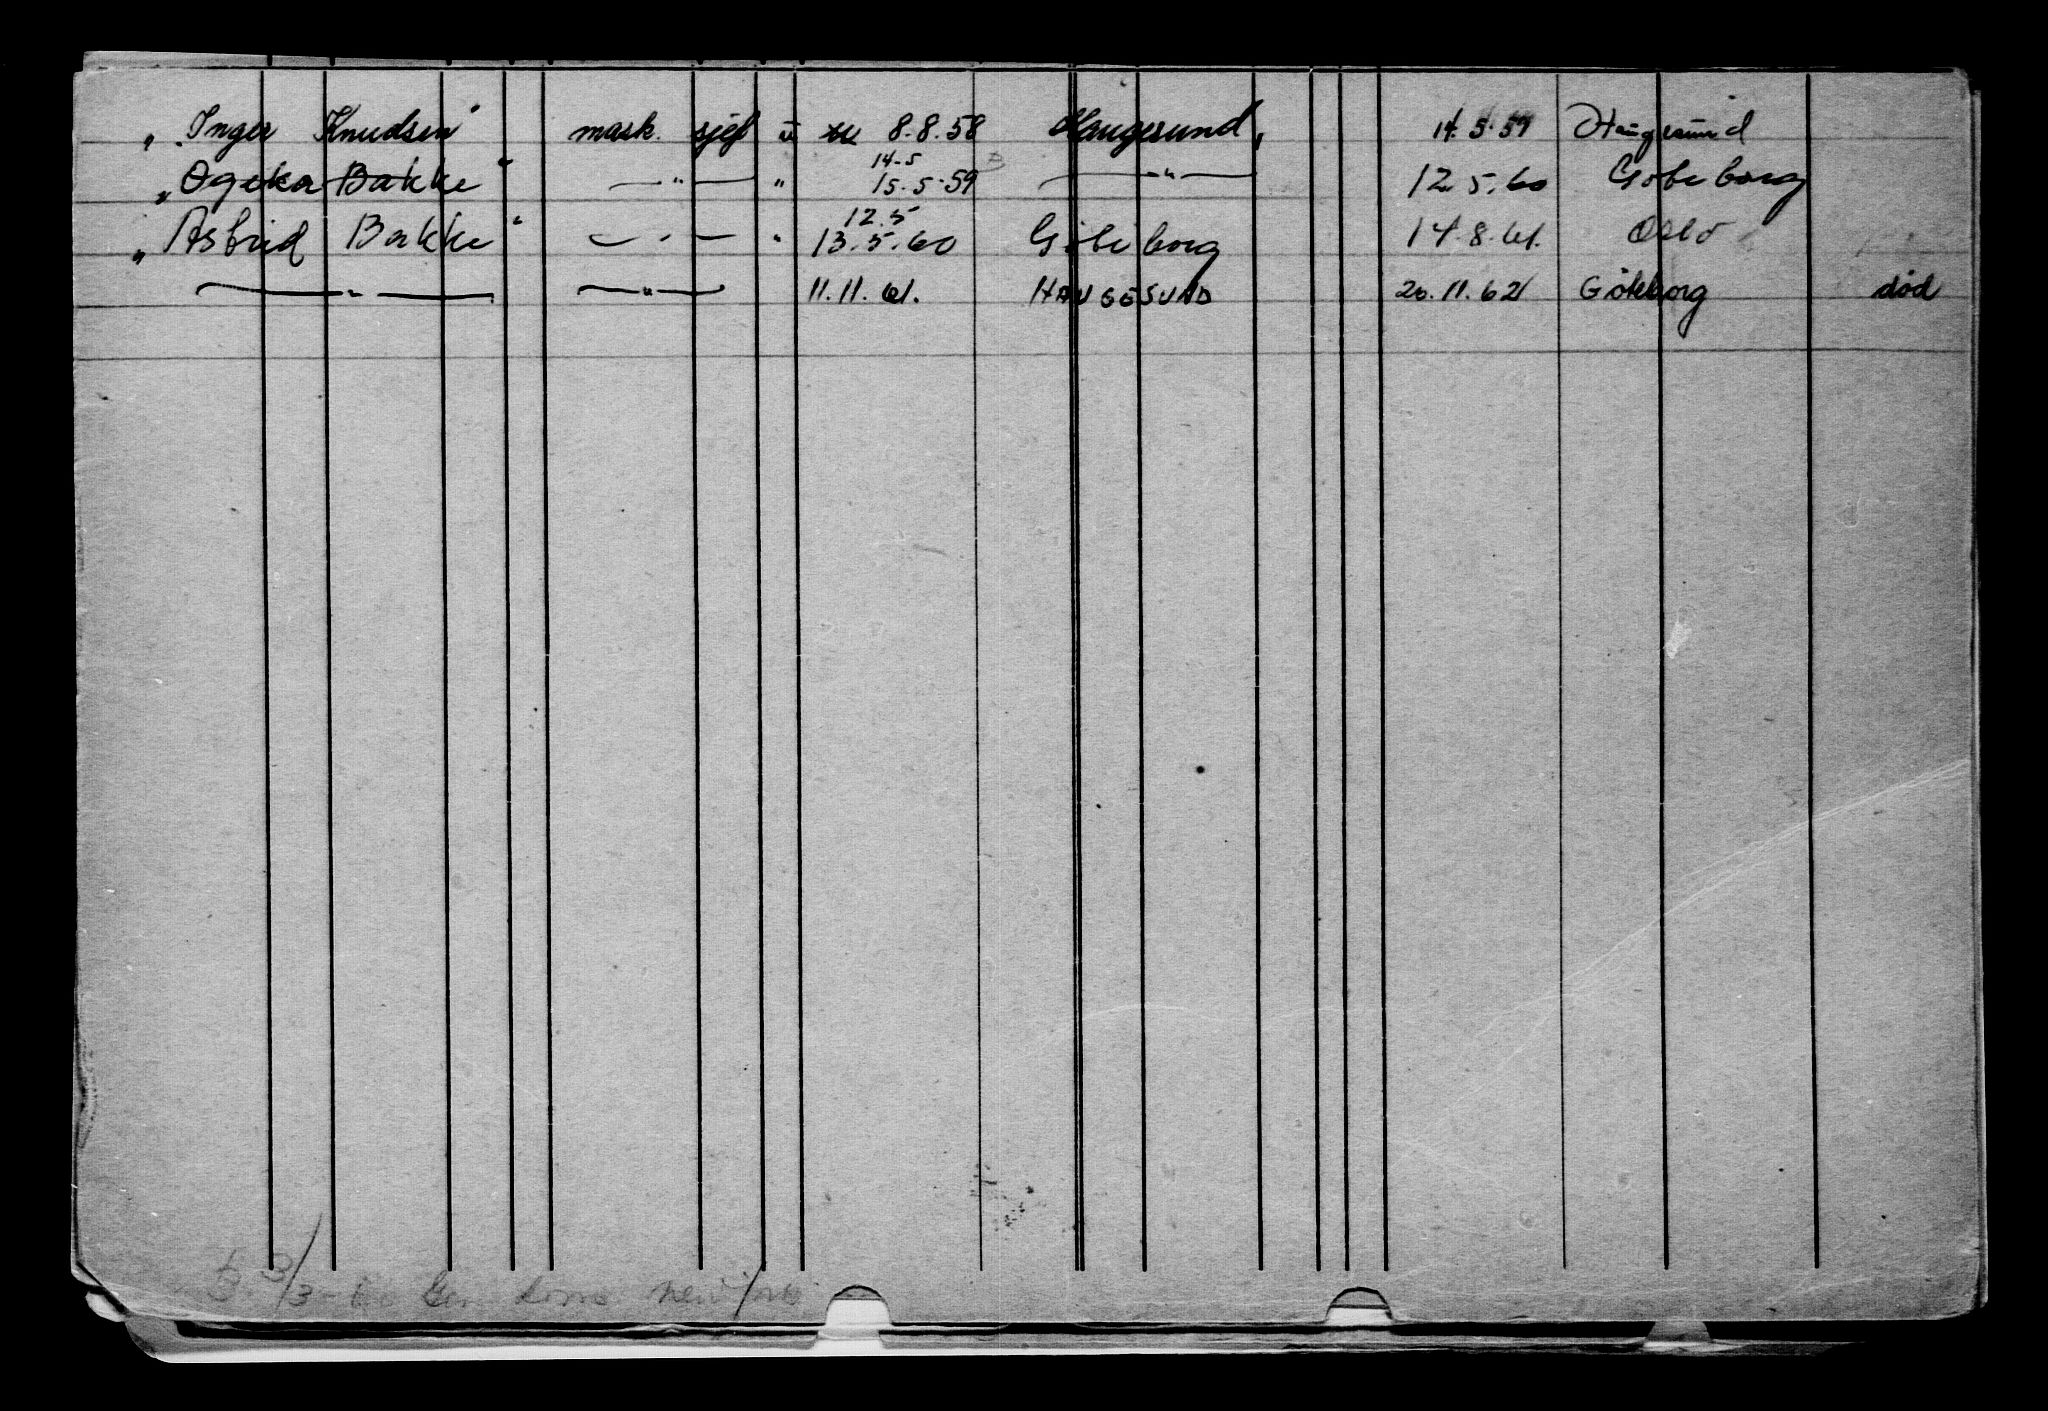 „Inger Knudsen" mask. sjef u 8.8.58 Haugesund, 14.5.59 Haugesund
14-5
„Ogeka Bakke" —"— " 15.5.59 —"— 12.5.60 Gøteborg
12.5
„Astrid Bakke" —"— " 13.5.60 Gøteborg 14.8.61. Oslo
—"— —"— 11.11.61. HAUGESUND 20.11.62 Göteborg død